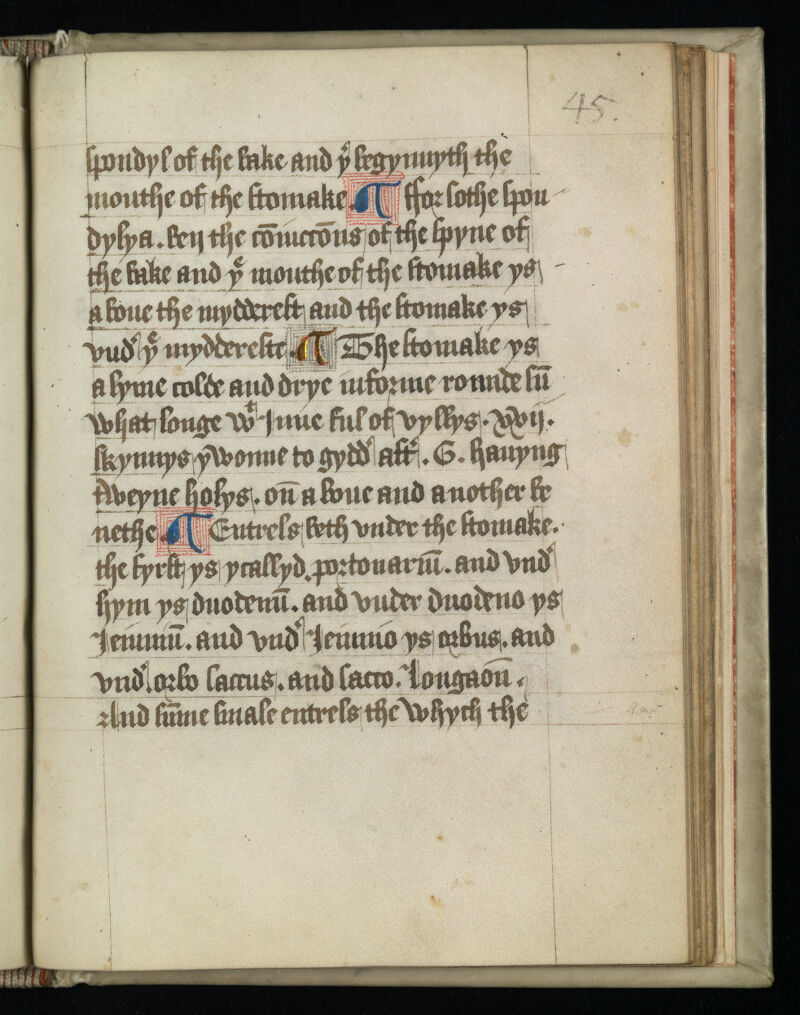 45.
spondyl of the bake and yͤ begynnyth the
mouthe of the stomake ¶ ffor sothe spon
dylya . ben the cōiuccōns of the spyne of
the bake and yͤ mouthe of the stomake ys
a boue the myddrest and the stomake ys
vnd' yͤ myddereste . ¶ The stomake ys
a lyme colde and drye in forme rounde sū
what longe wͭ Inne ful of vyllys . xxij .
skynnys ywonne to gydd' aft' . G . hauyng
tweyne holys . on a boue and a nother be
nethe ¶ Entrels beth vnder the stomake .
the fyrst ys ycallyd . portonariū . and vnd'
hym ys duodenū . and vnder duodeno ys
Ieiunū . and vnd' Ieiuno ys orbus . and
vnd' . orbo saccus . and sacco . longaon .
And sūme smale entrels the whych the